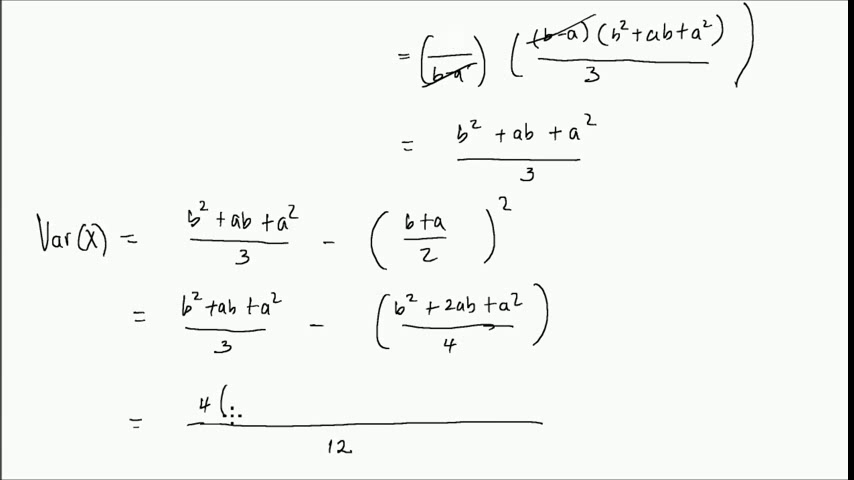 = ( / b-a ) ( (b-a) (b² + ab + a²) / 3 )
= b² + ab + a² / 3
Var(X) = b² + ab + a² / 3 - ( b+a / 2 )²
= b² + ab + a² / 3 - ( b² + 2ab + a² / 4 )
= 4 ( / 12